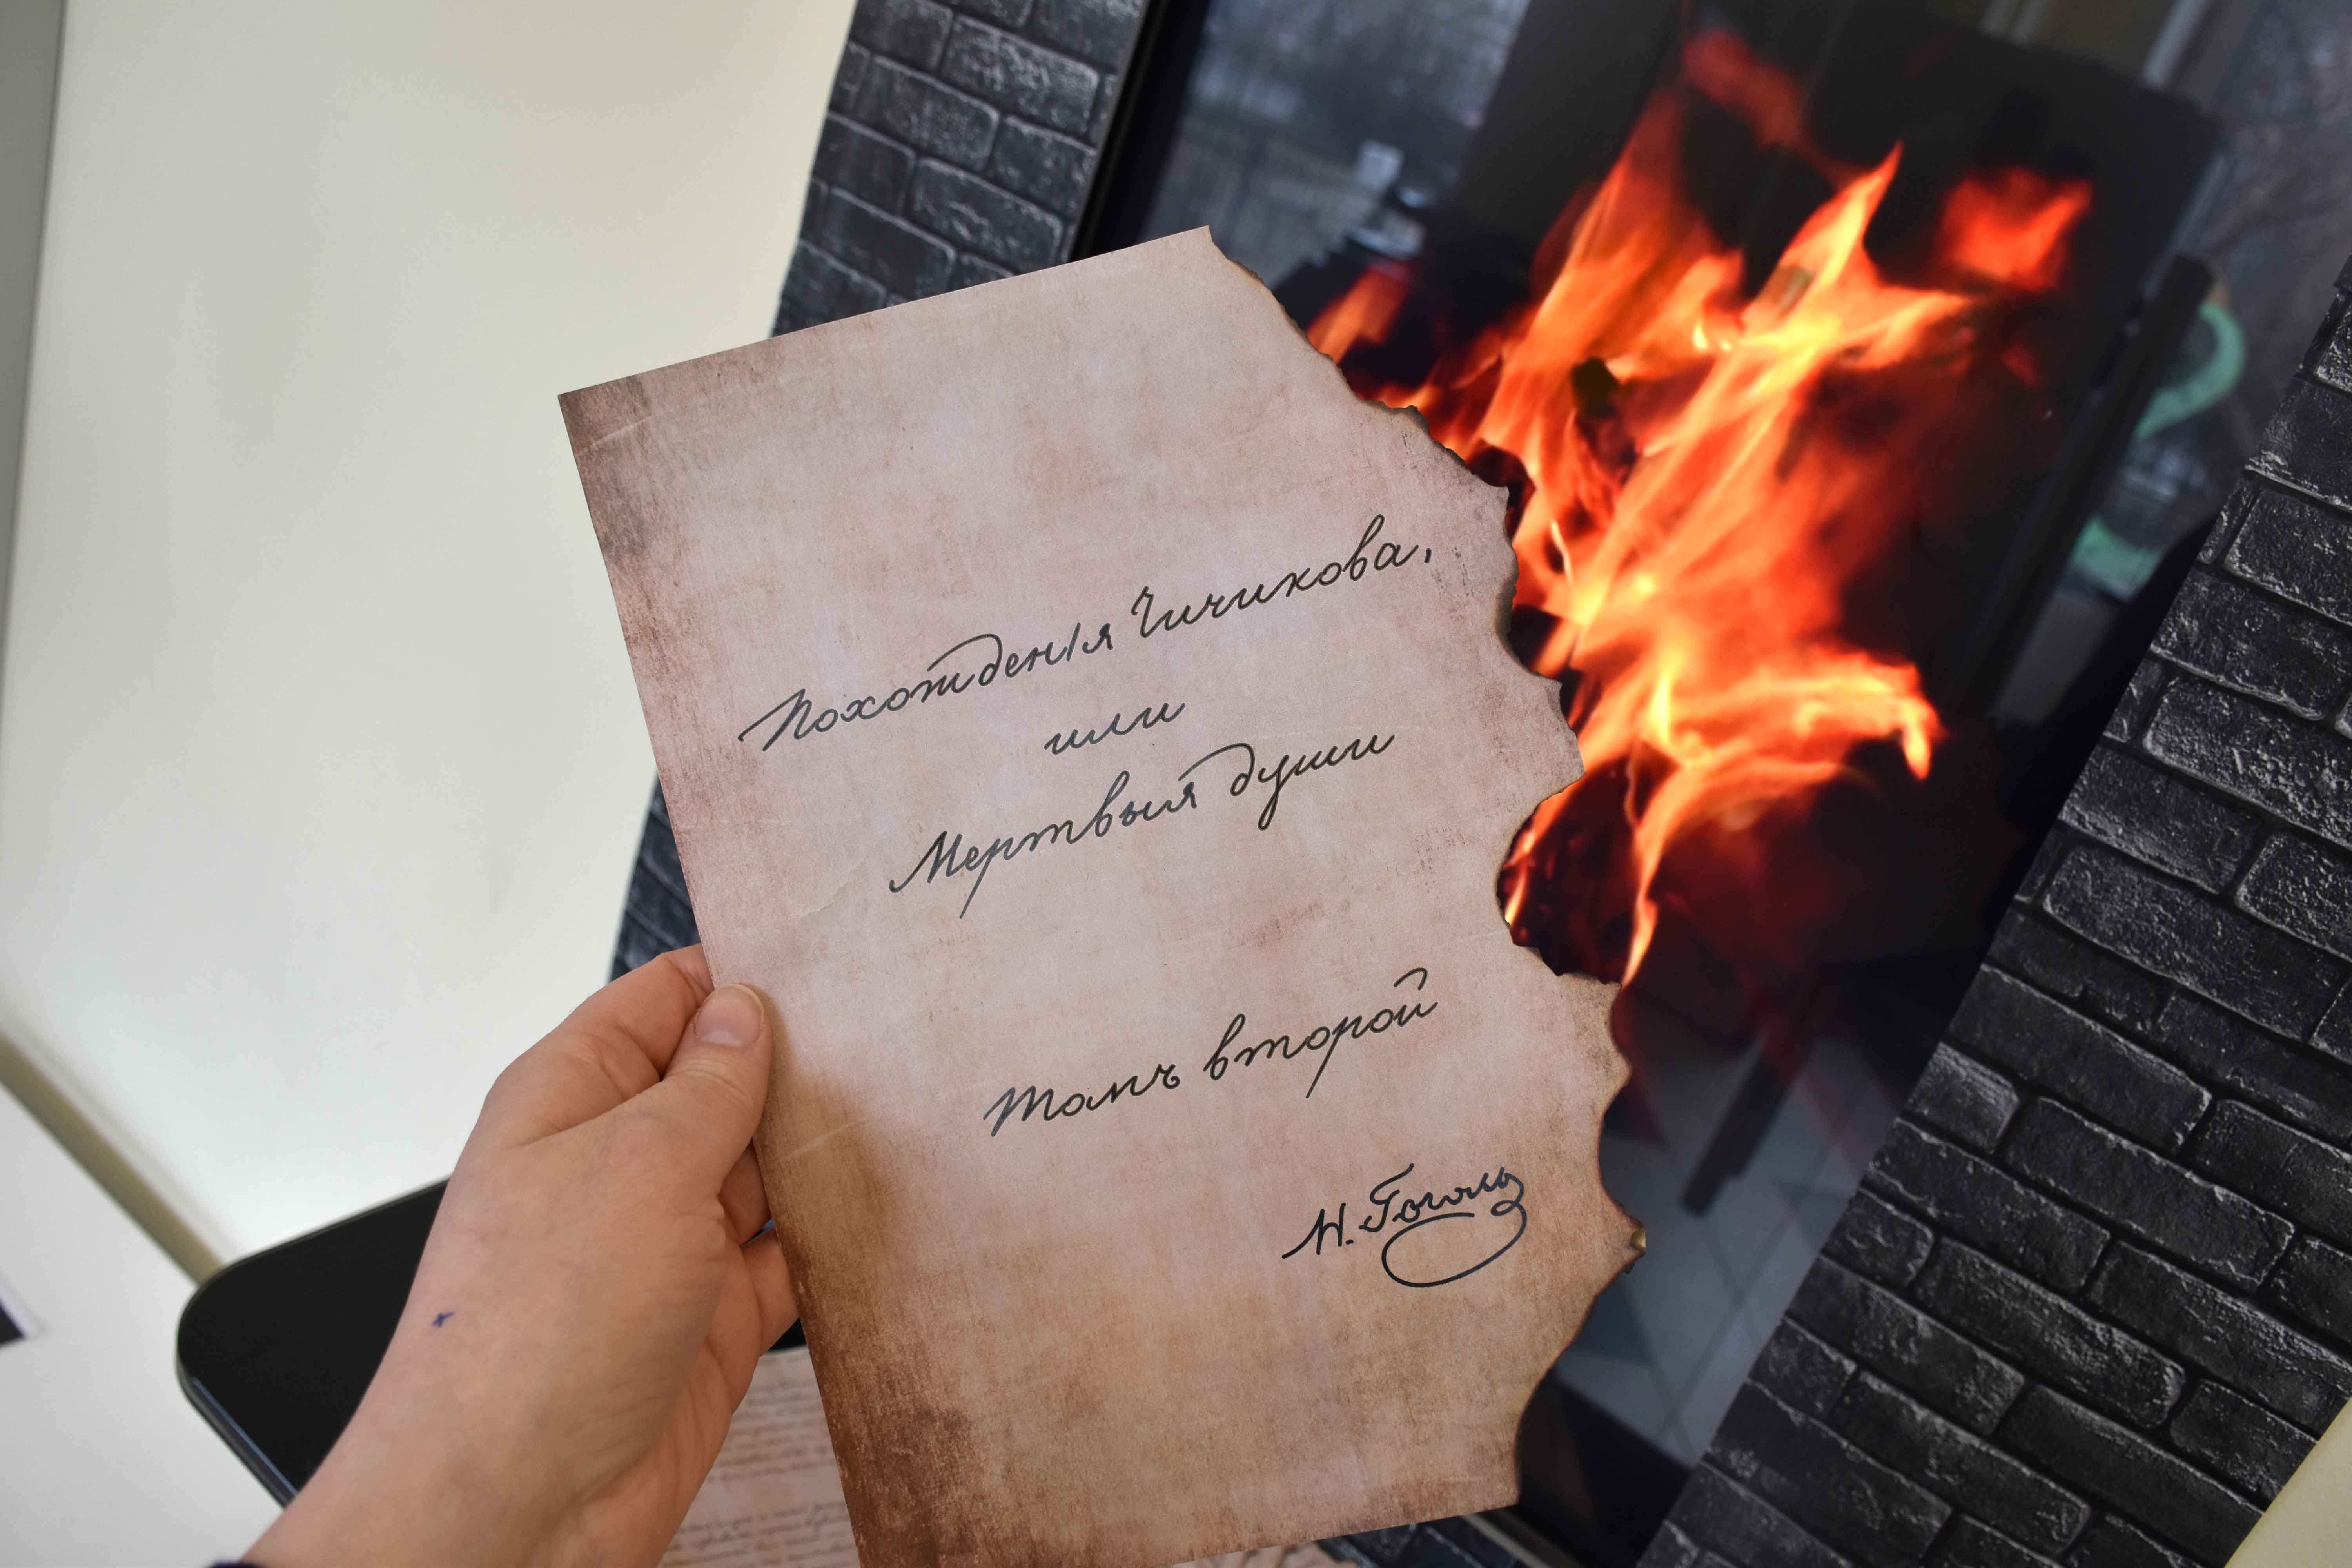 Похожденія Чичикова,
или
Мертвыя души
Томъ второй
Н. Гоголь